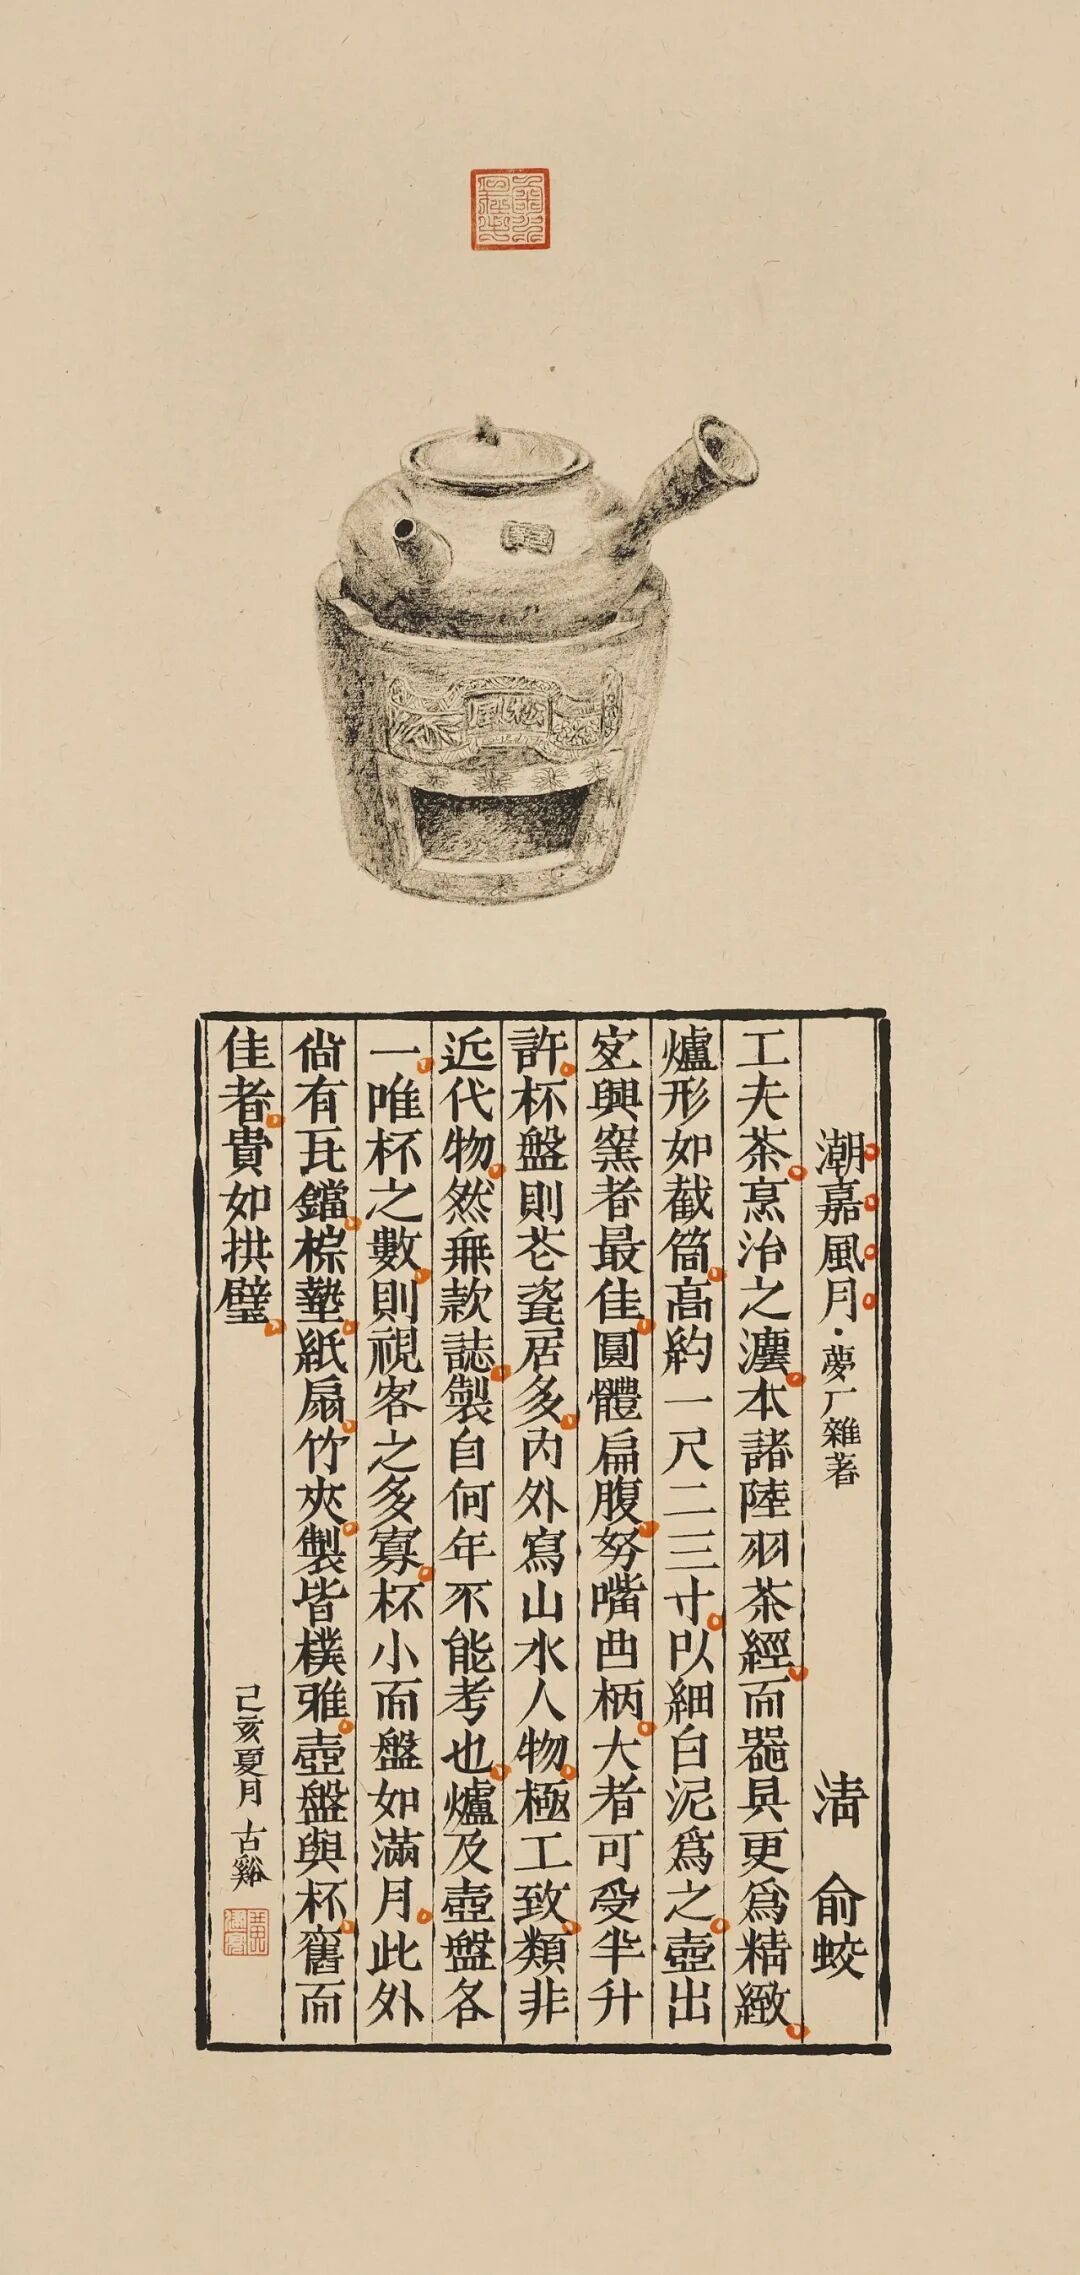 松風
潮嘉風月·夢厂雜著 清 俞蛟
工夫茶烹治之灋本諸陸羽茶經而器具更爲精緻
爐形如截筒高約一尺二三寸以細白泥爲之壺出
宐興窯者最佳圓體扁腹努嘴曲柄大者可受半升
許杯盤則花瓷居多內外寫山水人物極工致類非
近代物然無款誌製自何年不能考也爐及壺盤各
一唯杯之數則視客之多寡杯小而盤如滿月此外
尙有瓦鐺棕墊紙扇竹夾製皆樸雅壺盤與杯舊而
佳者貴如拱璧
己亥夏月 古谿